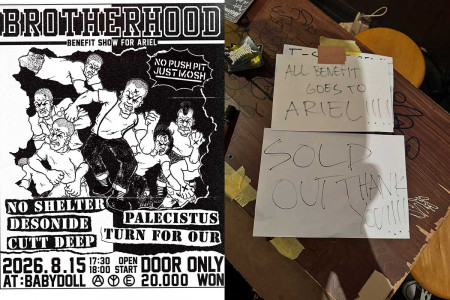 BROTHERHOOD
BENEFIT SHOW FOR ARIEL
NO PUSH PIT
JUST MOSH
NO SHELTER
DESONIDE
CUTT DEEP
PALECISTUS
TURN FOR OUR
2026.8.15 17:30 OPEN
18:00 START
DOOR ONLY
AT:BABYDOLL
20.000 WON
ALL BENEFIT
GOES TO
ARIEL!!!!!
SOLD
OUT THANK
YOU!!!!!